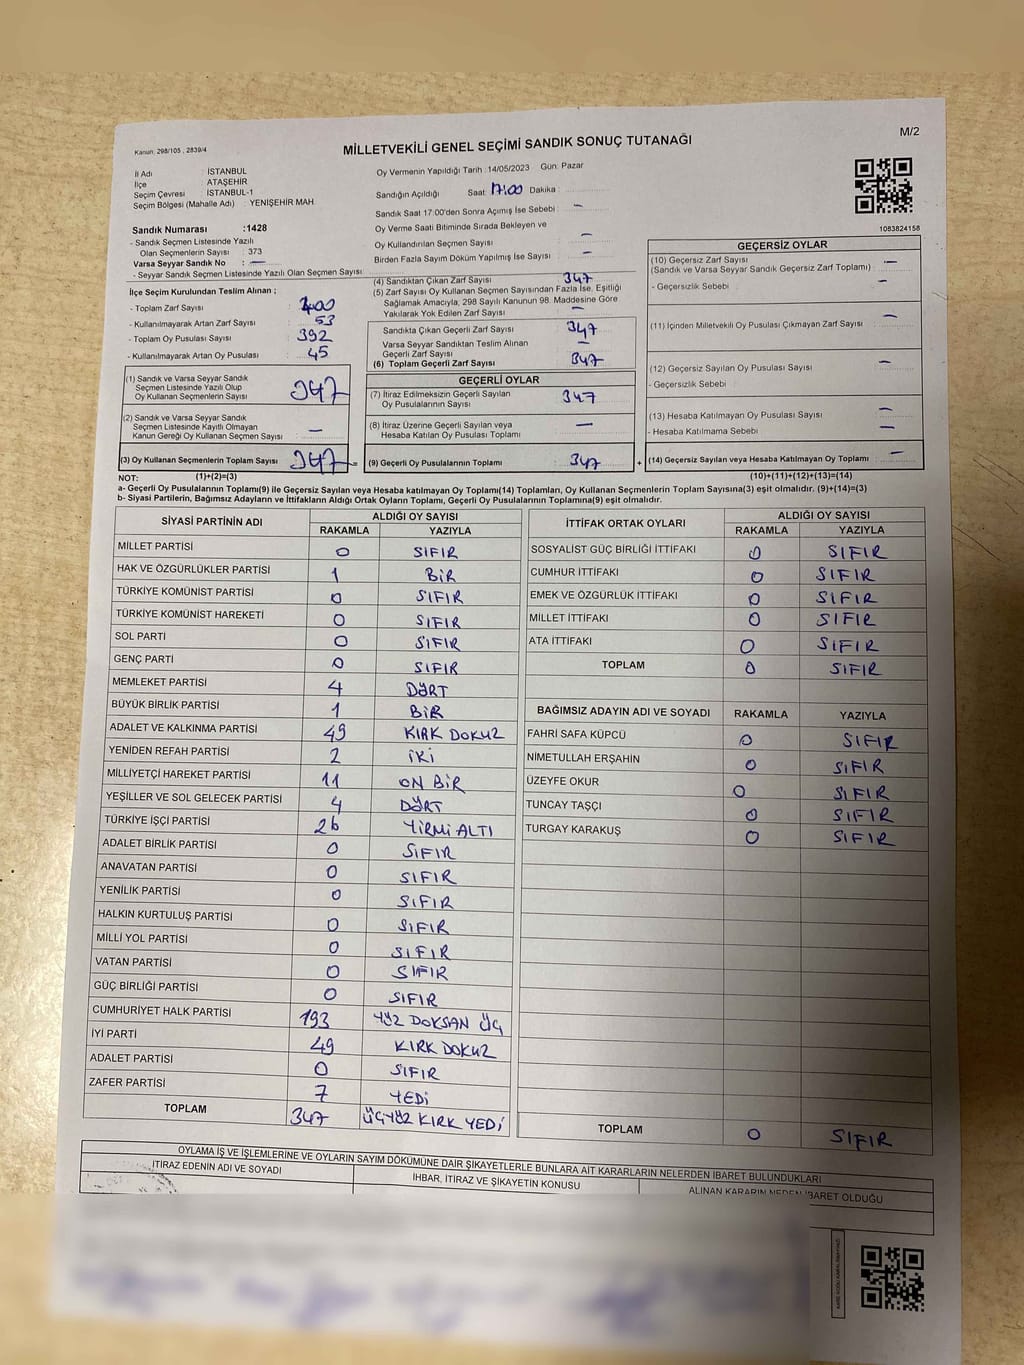 Kanun: 298/105 , 2839/4
MİLLETVEKİLİ GENEL SEÇİMİ SANDIK SONUÇ TUTANAĞI
M/2
İl Adı : İSTANBUL
İlçe : ATAŞEHİR
Seçim Çevresi : İSTANBUL-1
Seçim Bölgesi (Mahalle Adı) : YENİŞEHİR MAH.
Sandık Numarası :1428
- Sandık Seçmen Listesinde Yazılı
Olan Seçmenlerin Sayısı : 373
Varsa Seyyar Sandık No : —
- Seyyar Sandık Seçmen Listesinde Yazılı Olan Seçmen Sayısı
Oy Vermenin Yapıldığı Tarih :14/05/2023 Gün: Pazar
Sandığın Açıldığı Saat: 17:00 Dakika :
Sandık Saat 17:00'den Sonra Açımış İse Sebebi : —
Oy Verme Saati Bitiminde Sırada Bekleyen ve
Oy Kullandırılan Seçmen Sayısı : —
Birden Fazla Sayım Döküm Yapılmış İse Sayısı : —
1083824158
İlçe Seçim Kurulundan Teslim Alınan ;
- Toplam Zarf Sayısı : 400
- Kullanılmayarak Artan Zarf Sayısı : 53
- Toplam Oy Pusulası Sayısı : 392
- Kullanılmayarak Artan Oy Pusulası : 45
(1) Sandık ve Varsa Seyyar Sandık
Seçmen Listesinde Yazılı Olup
Oy Kullanan Seçmenlerin Sayısı 347
(2) Sandık ve Varsa Seyyar Sandık
Seçmen Listesinde Kayıtlı Olmayan
Kanun Gereği Oy Kullanan Seçmen Sayısı —
(3) Oy Kullanan Seçmenlerin Toplam Sayısı 347
(4) Sandıktan Çıkan Zarf Sayısı : 347
(5) Zarf Sayısı Oy Kullanan Seçmen Sayısından Fazla İse, Eşitliği
Sağlamak Amacıyla, 298 Sayılı Kanunun 98. Maddesine Göre
Yakılarak Yok Edilen Zarf Sayısı : —
Sandıkta Çıkan Geçerli Zarf Sayısı : 347
Varsa Seyyar Sandıktan Teslim Alınan
Geçerli Zarf Sayısı : —
(6) Toplam Geçerli Zarf Sayısı : 347
GEÇERLİ OYLAR
(7) İtiraz Edilmeksizin Geçerli Sayılan
Oy Pusulalarının Sayısı : 347
(8) İtiraz Üzerine Geçerli Sayılan veya
Hesaba Katılan Oy Pusulası Toplamı : —
= (9) Geçerli Oy Pusulalarının Toplamı : 347
GEÇERSİZ OYLAR
(10) Geçersiz Zarf Sayısı
(Sandık ve Varsa Seyyar Sandık Geçersiz Zarf Toplamı) : —
- Geçersizlik Sebebi : —
(11) İçinden Milletvekili Oy Pusulası Çıkmayan Zarf Sayısı : —
(12) Geçersiz Sayılan Oy Pusulası Sayısı : —
- Geçersizlik Sebebi :
(13) Hesaba Katılmayan Oy Pusulası Sayısı : —
- Hesaba Katılmama Sebebi : —
+ (14) Geçersiz Sayılan veya Hesaba Katılmayan Oy Toplamı : —
NOT: (1)+(2)=(3) (10)+(11)+(12)+(13)=(14)
a- Geçerli Oy Pusulalarının Toplamı(9) ile Geçersiz Sayılan veya Hesaba katılmayan Oy Toplamı(14) Toplamları, Oy Kullanan Seçmenlerin Toplam Sayısına(3) eşit olmalıdır. (9)+(14)=(3)
b- Siyasi Partilerin, Bağımsız Adayların ve İttifakların Aldığı Ortak Oyların Toplamı, Geçerli Oy Pusulalarının Toplamına(9) eşit olmalıdır.
SİYASİ PARTİNİN ADI ALDIĞI OY SAYISI
RAKAMLA YAZIYLA
MİLLET PARTİSİ 0 SIFIR
HAK VE ÖZGÜRLÜKLER PARTİSİ 1 BİR
TÜRKİYE KOMÜNİST PARTİSİ 0 SIFIR
TÜRKİYE KOMÜNİST HAREKETİ 0 SIFIR
SOL PARTİ 0 SIFIR
GENÇ PARTİ 0 SIFIR
MEMLEKET PARTİSİ 4 DÖRT
BÜYÜK BİRLİK PARTİSİ 1 BİR
ADALET VE KALKINMA PARTİSİ 49 KIRK DOKUZ
YENİDEN REFAH PARTİSİ 2 İKİ
MİLLİYETÇİ HAREKET PARTİSİ 11 ON BİR
YEŞİLLER VE SOL GELECEK PARTİSİ 4 DÖRT
TÜRKİYE İŞÇİ PARTİSİ 26 YİRMİ ALTI
ADALET BİRLİK PARTİSİ 0 SIFIR
ANAVATAN PARTİSİ 0 SIFIR
YENİLİK PARTİSİ 0 SIFIR
HALKIN KURTULUŞ PARTİSİ 0 SIFIR
MİLLİ YOL PARTİSİ 0 SIFIR
VATAN PARTİSİ 0 SIFIR
GÜÇ BİRLİĞİ PARTİSİ 0 SIFIR
CUMHURİYET HALK PARTİSİ 193 YÜZ DOKSAN ÜÇ
İYİ PARTİ 49 KIRK DOKUZ
ADALET PARTİSİ 0 SIFIR
ZAFER PARTİSİ 7 YEDİ
TOPLAM 347 ÜÇYÜZ KIRK YEDİ
İTTİFAK ORTAK OYLARI ALDIĞI OY SAYISI
RAKAMLA YAZIYLA
SOSYALİST GÜÇ BİRLİĞİ İTTİFAKI 0 SIFIR
CUMHUR İTTİFAKI 0 SIFIR
EMEK VE ÖZGÜRLÜK İTTİFAKI 0 SIFIR
MİLLET İTTİFAKI 0 SIFIR
ATA İTTİFAKI 0 SIFIR
TOPLAM 0 SIFIR
BAĞIMSIZ ADAYIN ADI VE SOYADI RAKAMLA YAZIYLA
FAHRİ SAFA KÜPCÜ 0 SIFIR
NİMETULLAH ERŞAHİN 0 SIFIR
ÜZEYFE OKUR 0 SIFIR
TUNCAY TAŞÇI 0 SIFIR
TURGAY KARAKUŞ 0 SIFIR
TOPLAM 0 SIFIR
OYLAMA İŞ VE İŞLEMLERİNE VE OYLARIN SAYIM DÖKÜMÜNE DAİR ŞİKAYETLERLE BUNLARA AİT KARARLARIN NELERDEN İBARET BULUNDUKLARI
İTİRAZ EDENİN ADI VE SOYADI İHBAR, İTİRAZ VE ŞİKAYETİN KONUSU ALINAN KARARIN NEDEN İBARET OLDUĞU